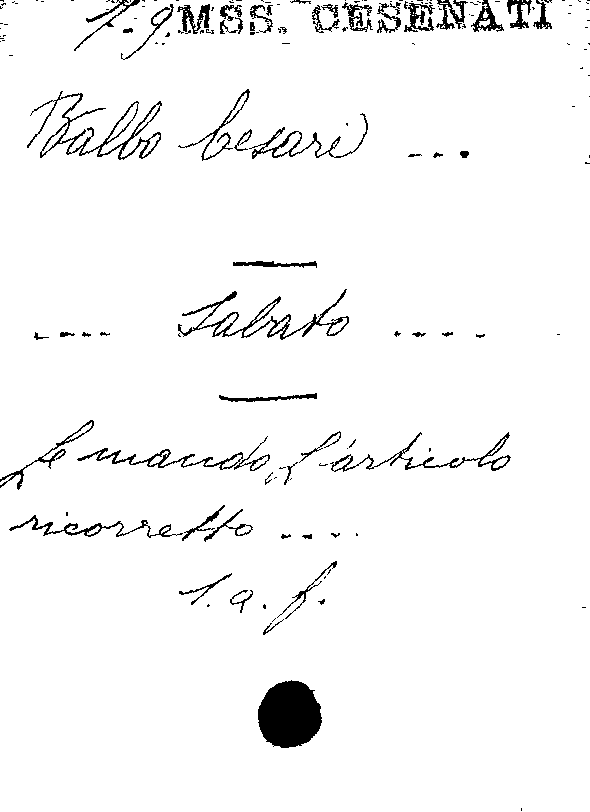 1.9. MSS. CESENATI
Balbo Cesare ...
.... Sabato ....
Le mando l'articolo
ricorretto ....
1. a. f.